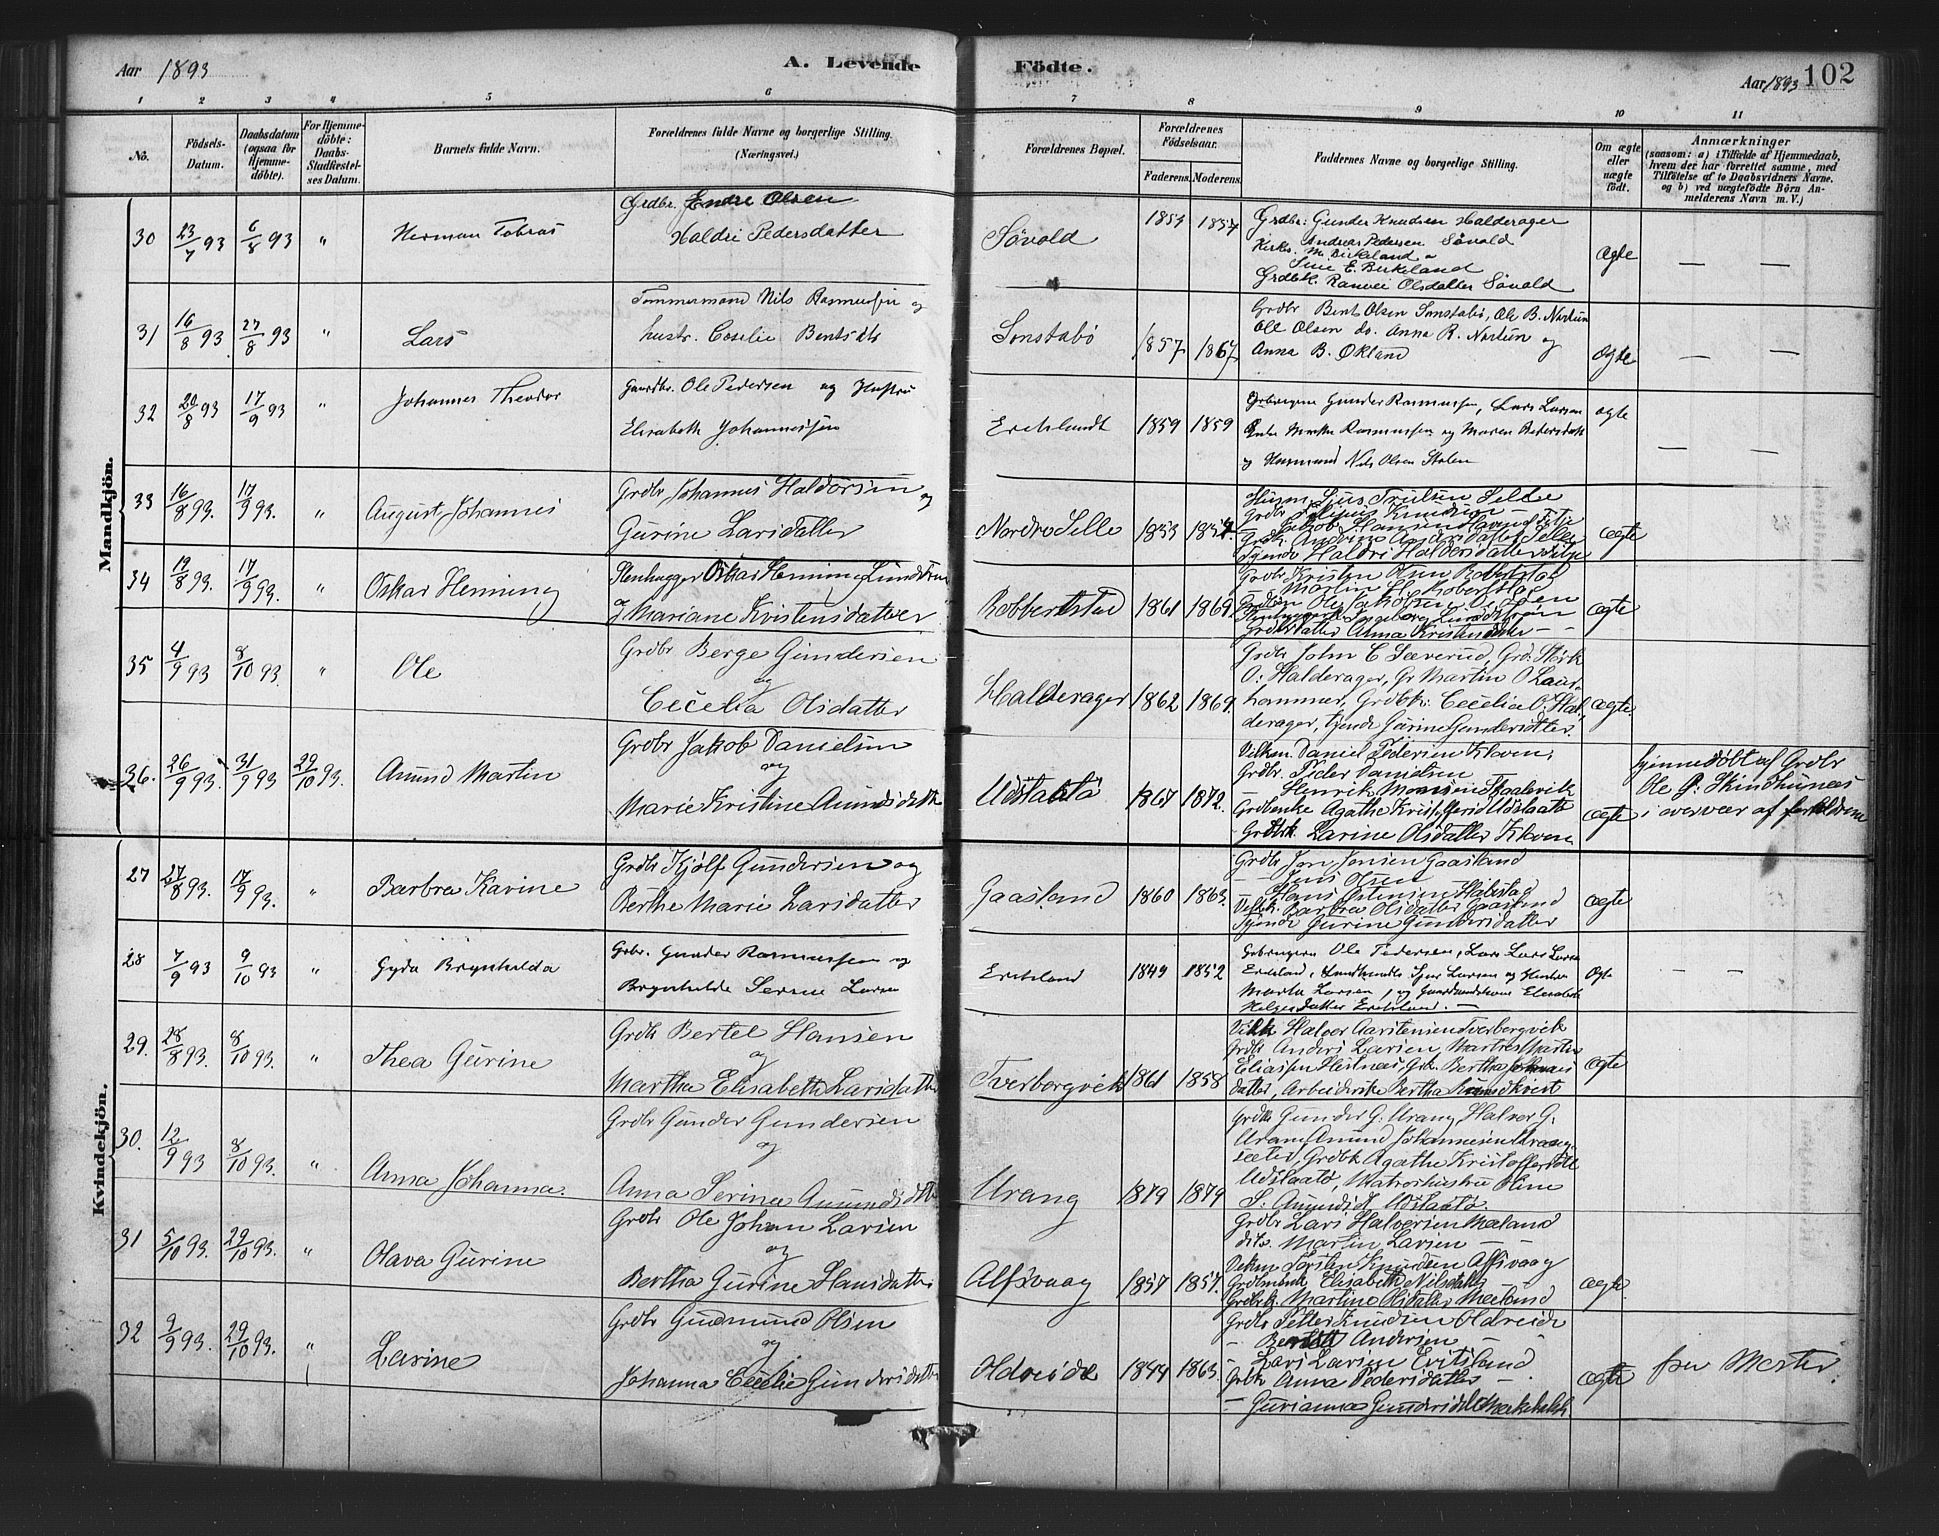 Aar 1893
A. Levende
Födte.
Aar 1893 102
1 2 3 4 5 6 7 8 9 10 11
No.
Födsels-
Datum.
Daabsdatum
(ogsaa for
Hjemme-
döbte).
For Hjemme-
döbte:
Daabs-
Stadfæstel-
ses Datum.
Barnets fulde Navn.
Forældrenes fulde Navne og borgerlige Stilling.
(Næringsvei.)
Forældrenes Bopæl.
Forældrenes
Födselsaar.
Faderens. Moderens.
Faddernes Navne og borgerlige Stilling.
Om ægte
eller
uægte
födt.
Anmærkninger
(saasom: a) i Tilfælde af Hjemmedaab,
hvem der har forrettet samme, med
Tilföielse af to Daabsvidners Navne,
og b) ved uægtefödte Börn An-
melderens Navn m. V.)
Mandkjön.
30 23/7 93 6/8 93 " Herman Tobias
Grdbr. Endre Olsen
Haldri Pedersdatter
Sövold 1853 1857
Grdbr: Gunder Knudsen Halderager
Kirkes. Andreas Pedersen Sövold
M. Birkeland
Sine E. Birkeland
Grdbk. Ranvei Olsdatter Sövold
Ægte — —
31 16/8 93 27/8 93 " Lars
Tømmermand Nils Rasmussen og
hustr. Cecelie Bentsdtr
Sönstabö 1857 1867
Grdbr Bent Olsen Sönstabø, Ole B. Nortun
Ole Olsen do. Anna R. Nortun og
Anna B. Økland
Ægte — —
32 20/8 93 17/9 93 " Johannes Theodor
Gaardbr. Ole Pedersen og Hustru
Elisabeth Johannessen
Erikslandt 1859 1859
Gunder Rasmussen, Lars Larsen
Rasmussen og Maren Pedersdatt
og Husmand Nils Olsen Stolen
ægte — —
33 16/8 93. 17/9 93. " August Johannes
Grdbr Johannes Haldorsen og
Gurine Larsdatter
Nordre Selle 1853 1857
Husm Sjus Trulsen Selle
Grdbr Filipus Knudsen —
Jakob Hansen
Andrine Andersdatter Selle
Tjende Haldri Haldersdatter
ægte
34 19/8 93. 17/9 93. " Oskar Henning
Stenhugger Oskar Henning Lundstrøm
og Mariane Kristensdatter
Robbertstad 1861 1869.
Grdbr Kristen Olsen Robbertstad
Martin H. Robbertstad
Ole Jakobsen
Ingeborg Lundstrøm
Grdbrdatter Anna Kristensdatter — —
ægte
35 4/9 93 8/10 93. " Ole
Grdbr Berge Gundersen
og
Cecelia Olsdatter
Halderager 1862 1869.
Grdbr John C Sæverud, Grd: Størk
O. Halderager, Gr Martin O Laur-
hammer, Grdbk: Cecelia O. Hal-
derager, tjende Gurine Gundersdatter.
ægte.
36. 26/9 93. 31/9 93 29/10 93. Amund Martin
Grdbr Jakob Danielsen
og
Marie Kristine Amundsdatter
Udstaatö 1867 1872.
Vilkm. Daniel Pedersen Kloven.
Grdbr. Peder Danielsen
— Henrik Monsen Staalevik
Grdbenke Agathe Kristoffersd Udstaatø
Grdbrk. Larine Olsdatter Kloven
ægte
hjemmedöbt af Grdbr
Ole P. Skimhusnæs
i overvær af forældrene
Kvindekjön.
27 27/8 93. 17/9 93. " Barbra Karine
Grdbr Kjölf Gundersen og
Berthe Marie Larsdatter
Gaasland 1860 1863.
Grdbr Jon Jonsen Gaasland
— Jens Olsen
— Hans Ostensen Habbestad
Vilkk. Barbra Olsdatter Gaasland
Tjende Gurine Gundersdatter
ægte
28 7/9 93 9/10 93 " Gyda Brynhilda
Grbr. Gunder Rasmussen og
Brynhilde Serene Larsen
Eriksland 1849 1852
Gaardbrugerne Ole Pedersen, Lars Larsen
Eriksland, Landhandler Sjur Larsen og Hustru
Marta Larsen, og Elisabeth
Helgesdatter Eriksland. —
Ægte — —
29. 28/8 93. 8/10 93. " Thea Gurine
Grdbr Bertel Hansen
og
Martha Elisabeth Larsdatter
Tverborgvik 1861 1858
Vilkk Halvor Aarstensen Tverborgvik
Grdbr Anders Larsen, Matros Martin
Eliassen Hestnæs, Grk. Bertha Johannes
datter, Arbeiderske Bertha Rundkvist
ægte
30. 12/9 93 8/10 93. " Anna Johanna.
Grdbr Gunder Gundersen
og
Anna Serine Amundsdatter
Urang 1879 1879
Grdbr Gunder G. Urang, Halvor G.
Urang, Amund Johannesen Urang-
sæter, Grdbk Agathe Kristoffersdatter
Udstaatö, Matroshustru Oline
S. Amundsdt. Udstaatø.
31 5/10 93. 29/10 93. " Olava Gurine
Grdbr Ole Johan Larsen
og
Bertha Gurine Hansdatter
Alfsvaag 1857 1857.
Grdbr Lars Halversen Mæland
dito. Martin Larsen — —
Torsten Knudsen Alfsvaag
Elisabeth Nilsdatter
Grdbrk. Martine Olsdatter Mæland
ægte.
32 9/9 93. 29/10 93. " Larine
Grdbr Gudmund Olsen
og
Johanna Cecelie Gundersdatter
Oldreide 1844 1863.
Grdbr Petter Knudsen Oldreide
— Anderson —
— Lars Larsen Eritsland
Grbk Anna Pedersdatter —
— Gurianna Gundersdtr
ægte
paa Moster.